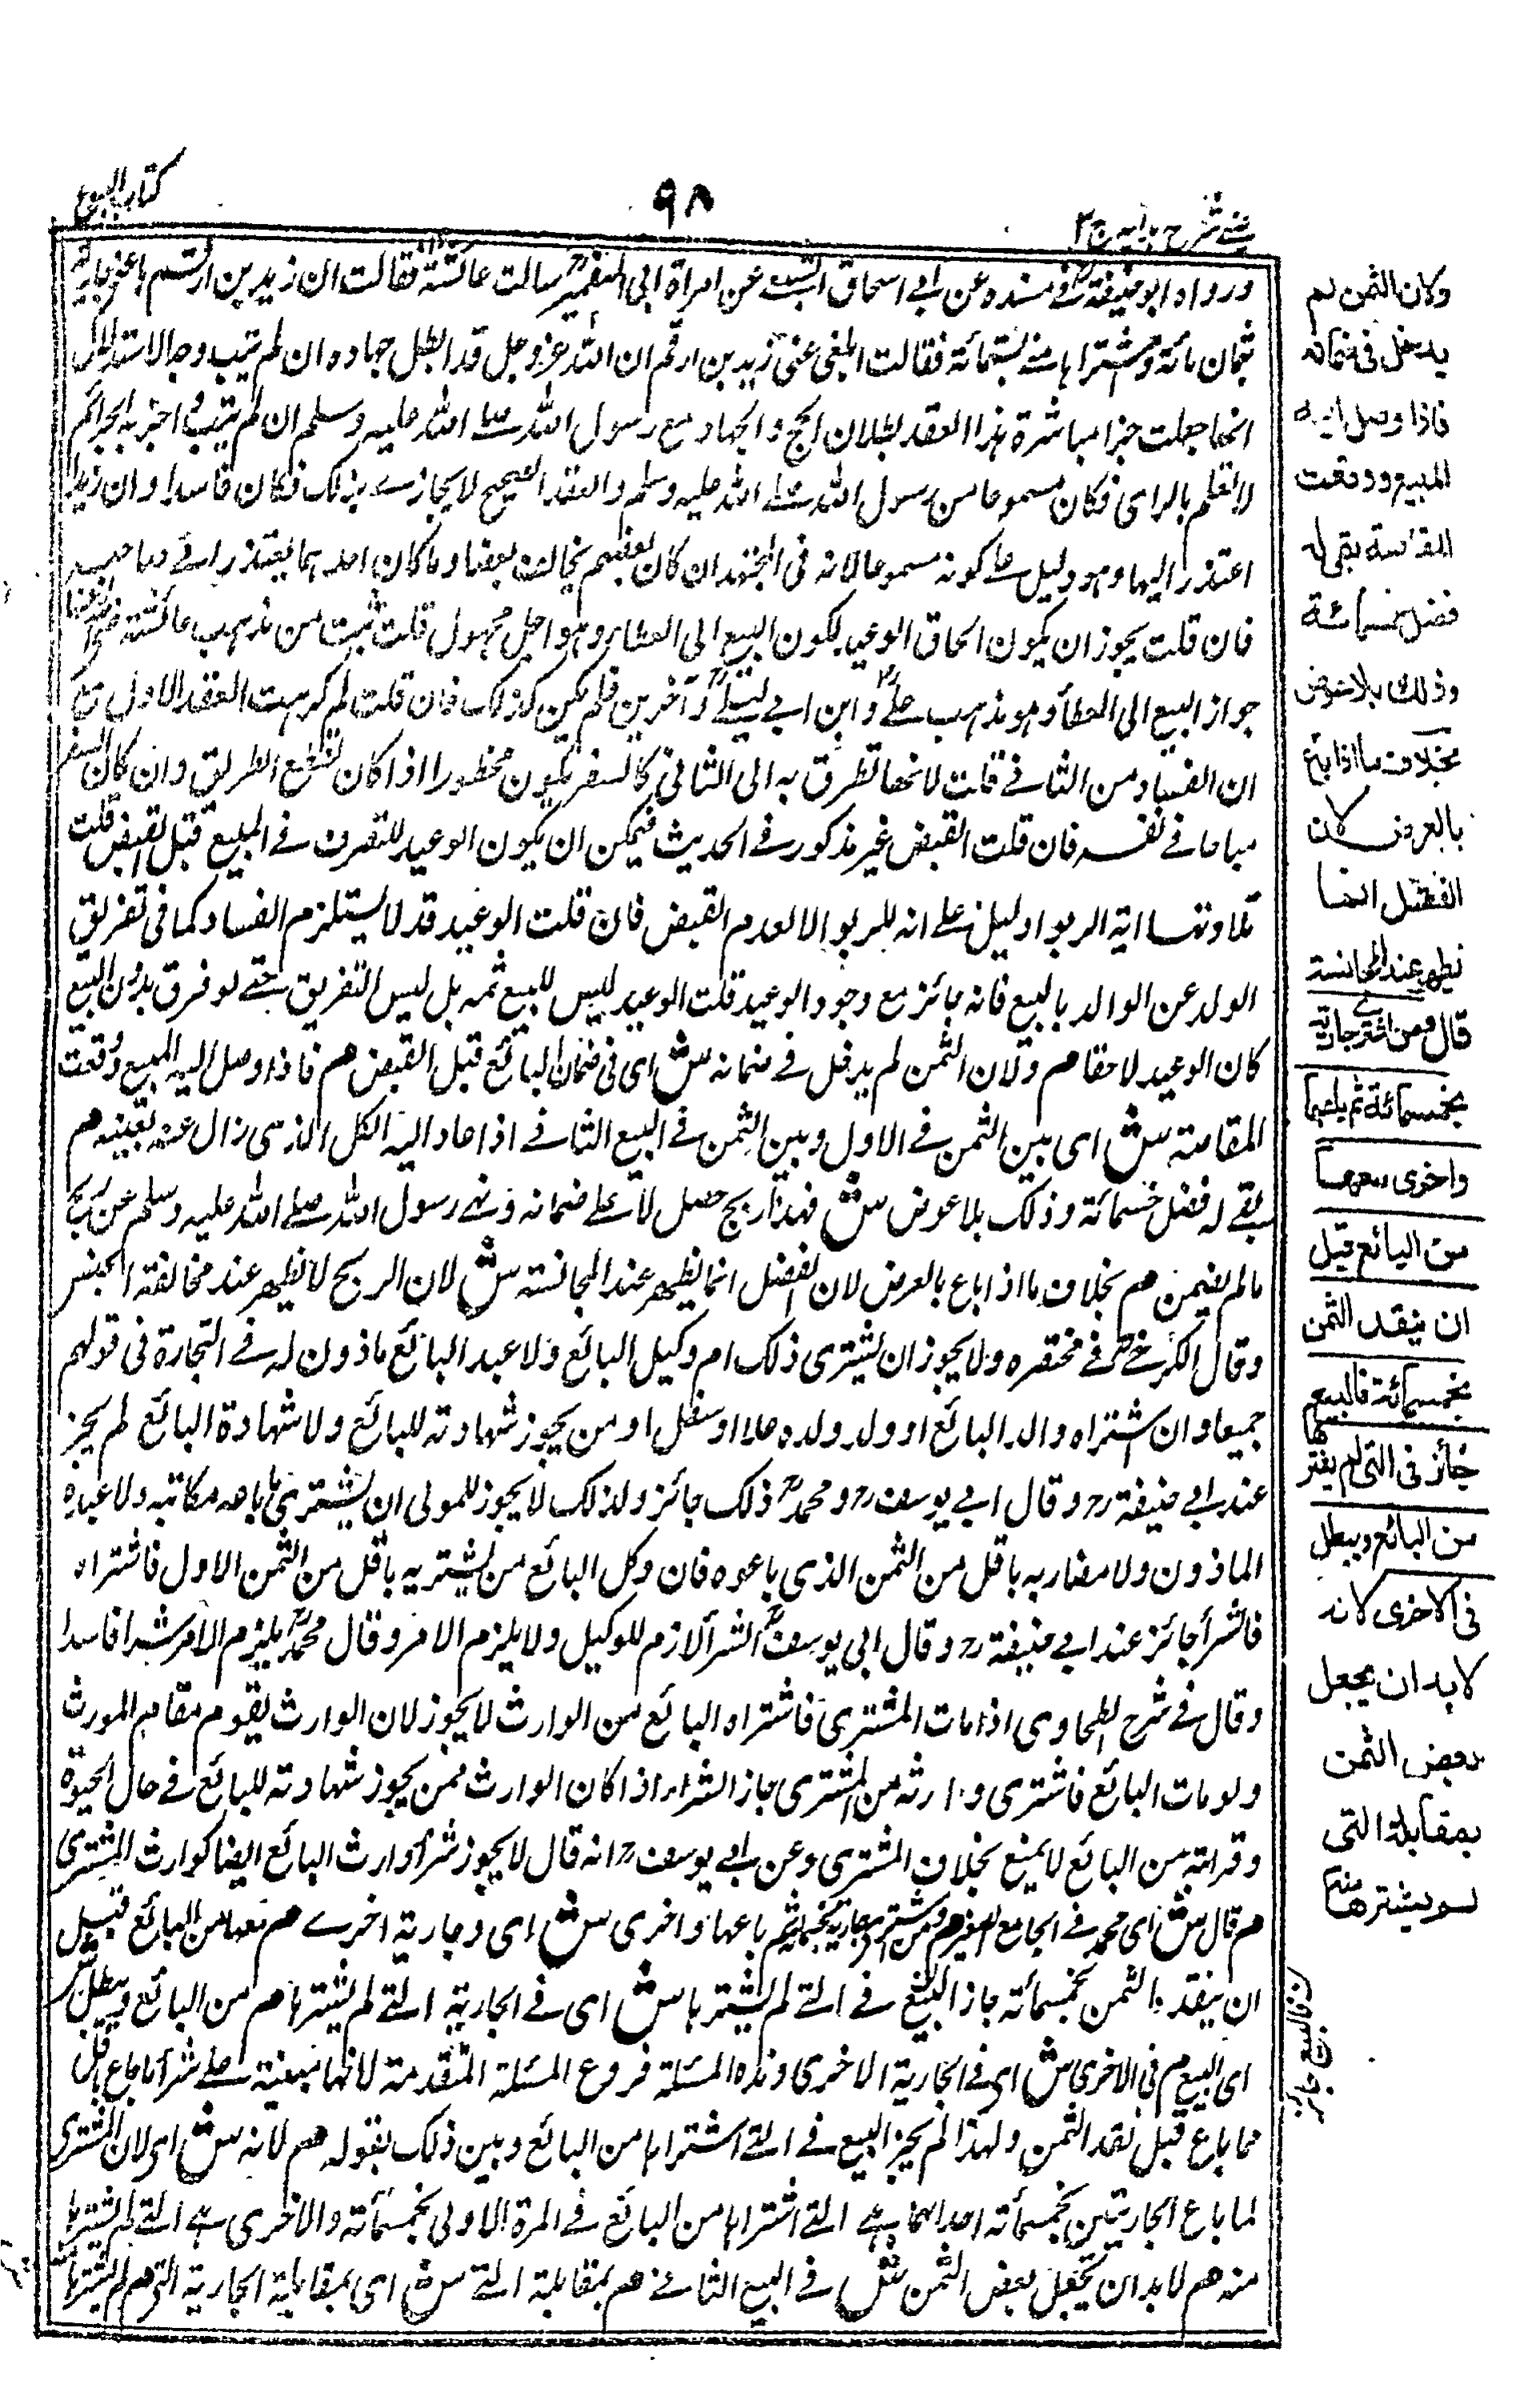 كتاب البيوع
٩٨
عينى شرح هدايه ج٣
ورواه ابو حنيفة رح فى مسنده عن ابى اسحاق السبيعى عن امرأة ابى السفر سالت عائشة فقالت ان زيد بن ارقم باعنى جارية
بثمان مائة واشتراها منى بستمائة فقالت ابلغى عنى زيد بن ارقم ان الله عز وجل قد ابطل جهاده ان لم يتب وجه الاستدلال
انها جعلت جزا مباشرة هذا العقد بطلان الحج والجهاد مع رسول الله صلى الله عليه وسلم ان لم يتب واجزية الجرائم
لا تعلم بالراى فكان مسموعا من رسول الله صلى الله عليه وسلم والعقد الصحيح لا يجازى بذلك فكان فاسدا وان زيدا
اعتذر اليها وهو دليل على كونه مسموعا لانه فى المجتهدات كان بعضهم يخالف بعضا وما كان احدهما يعتذر الى صاحبه
فان قلت يجوز ان يكون الحاق الوعيد لكون البيع الى العطاء وهو اجل مجهول قلت ثبت من مذهب عائشة رضى الله عنها
جواز البيع الى العطأ وهو مذهب على رض وابن ابى ليلى رح وآخرين فلم يكن كذلك فان قلت لم كرهت العقد الاول مع
ان الفساد من الثانى قلت لانها تطرق به الى الثانى كالسفر يكون محظورا اذا كان لقطع الطريق وان كان السفر
مباحا فى نفسه فان قلت القبض غير مذكور فى الحديث فيمكن ان يكون الوعيد للتصرف فى المبيع قبل القبض قلت
تلاوتها اية الربوا دليل على انه للربوا لا لعدم القبض فان قلت الوعيد قد لا يستلزم الفساد كما فى تفريق
الولد عن الوالد بالبيع فانه جائز مع وجود الوعيد قلت الوعيد ليس للبيع ثمه بل ليس التفريق حتى لو فرق بدون البيع
كان الوعيد لاحقا هم ولان الثمن لم يدخل فى ضمانه ش اى فى ضمان البائع قبل القبض هم فاذا وصل اليه المبيع وقعت
المقاصة ش اى بين الثمن فى الاول وبين الثمن فى البيع الثانى اذا عاد اليه الكل الذى زال عنه بعينه هم
بقى له فضل خمسمائة وذلك بلا عوض ش فهذا ربح حصل لا على ضمانه ونهى رسول الله صلى الله عليه وسلم عن ربح
مالم يضمن هم بخلاف ما اذا باع بالعرض لان الفضل انما يظهر عند المجانسة ش لان الربح لا يظهر عند مخالفة الجنس
وقال الكرخى رح فى مختصره ولا يجوز ان يشترى ذلك ام وكيل البائع ولا عبد البائع ماذون له فى التجارة فى قولهم
جميعا وان اشتراه والد البائع او ولد ولده علا او سفل او من يجوز شهادته للبائع ولا شهادة البائع لم يجز
عند ابى حنيفة رح وقال ابى يوسف رح ومحمد رح ذلك جائز ولذلك لا يجوز للمولى ان يشترى ما باعه مكاتبه ولا عبده
الماذون ولا مضاربه باقل من الثمن الذى باعوه فان وكل البائع من يشتريه باقل من الثمن الاول فاشتراه
فالشرأ جائز عند ابى حنيفة رح وقال ابى يوسف رح الشرأ لازم للوكيل ولا يلزم الامر وقال محمد رح يلزم الامر شرا فاسدا
وقال فى شرح الطحاوى اذا مات المشترى فاشتراه البائع من الوارث لا يجوز لان الوارث يقوم مقام المورث
ولو مات البائع فاشترى وارثه من المشترى جاز الشراء اذا كان الوارث ممن يجوز شهادته للبائع فى حال الحيوة
وقرابته من البائع لا يمنع بخلاف المشترى وعن ابى يوسف رح انه قال لا يجوز شرأ وارث البائع ايضا كوارث المشترى
هم قال ش اى محمد فى الجامع الصغير هم ومن اشترى جارية بخمسمائة ثم باعها واخرى ش اى وجارية اخرى هم معها من البائع قبل
ان ينقد الثمن بخمسمائة جاز البيع فى التى لم يشترها ش اى فى الجارية التى لم يشترها هم من البائع ويبطل ش
اى البيع هم فى الاخرى ش اى فى الجارية الاخرى وهذه المسئلة فروع المسئلة المتقدمة لانها مبنية على شرأ ما باع باقل
مما باع قبل نقد الثمن ولهذا لم يجز البيع فى التى اشتراها من البائع وبين ذلك بقوله هم لانه ش اى لان المشترى
لما باع الجاريتين بخمسمائة احدهما هى التى اشتراها من البائع فى المرة الاولى بخمسمائة والاخرى هى التى لم يشترها
منه هم لابد ان يجعل بعض الثمن ش فى البيع الثانى هم بمقابلة التى ش اى بمقابلة الجارية التى هم لم يشترها
وكان الثمن لم
يدخل فى ضمانه
فاذا وصل اليه
المبيع ووقعت
المقاصة بقى له
فضل خمسمائة
وذلك بلا عوض
بخلاف ما اذا باع
بالعرض لان
الفضل انما
يظهر عند المجانسة
قال ومن اشترى جارية
بخمسمائة ثم باعها
واخرى معها
من البائع قبل
ان ينقد الثمن
بخمسمائة فالبيع
جائز فى التى لم يشترها
من البائع ويبطل
فى الاخرى لانه
لابد ان يجعل
بعض الثمن
بمقابلة التى
لم يشترها منه
ن فالبيع جائز